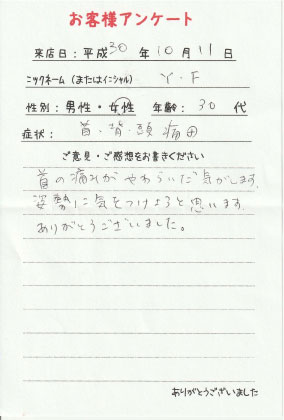 お客様アンケート
来店日：平成30年10月11日
ニックネーム（またはイニシャル） Y・F
性別：男性・女性 年齢：30代
症状：首・背・頭痛
ご意見・ご感想をお書きください
首の痛みがやわらいだ気がします。
姿勢に気をつけようと思います。
ありがとうございました。
ありがとうございました